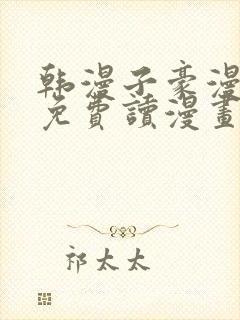 韩漫子豪漫
免費讀漫畫
祁太太